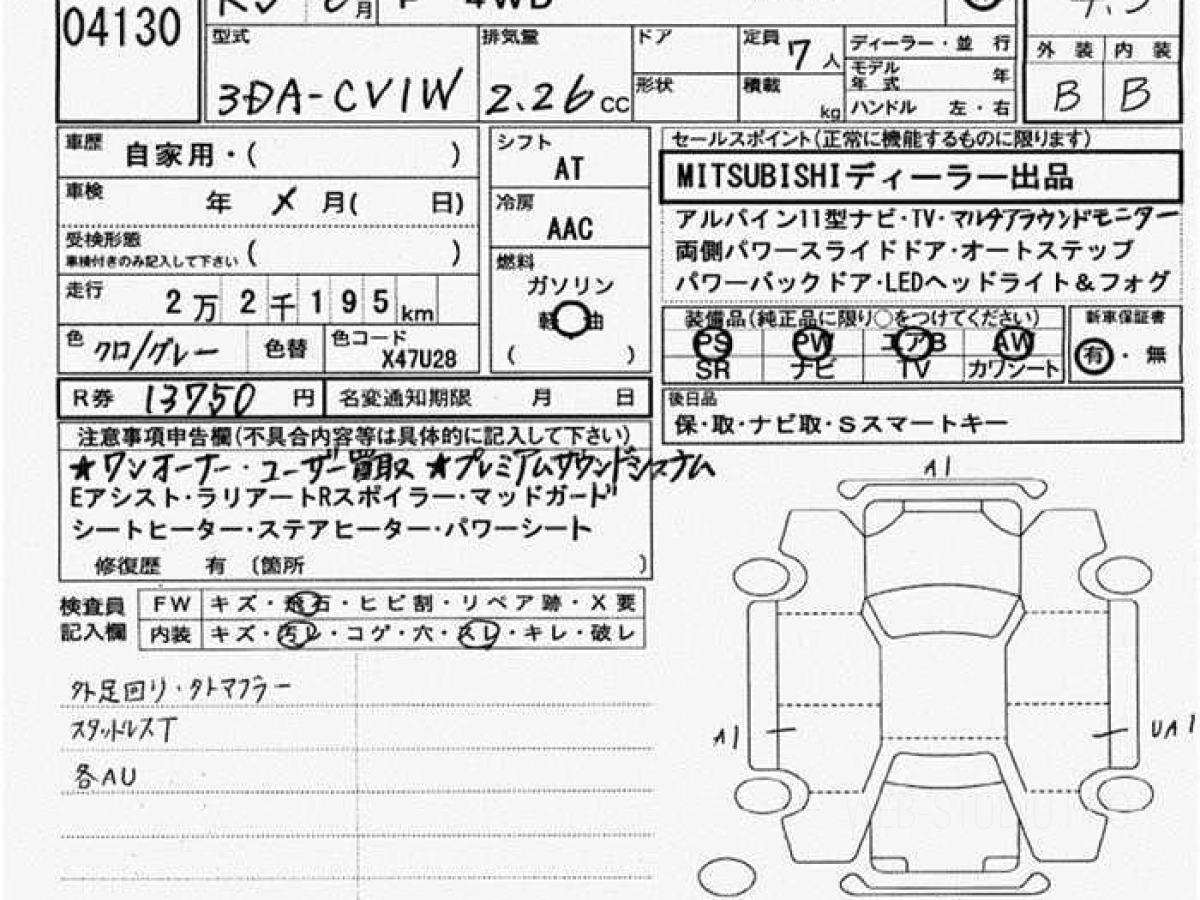 04130 R5 6月 P 4WD 4.5
型式 排気量 ドア 定員 7人 ディーラー・並 行 外 装 内 装
3DA-CV1W 2.26cc 形状 積載 kg モデル年式 年 B B
ハンドル 左・右
車歴 自家用・( ) シフト AT セールスポイント(正常に機能するものに限ります)
MITSUBISHIディーラー出品
車検 年 X 月( 日) 冷房 AAC アルパイン11型ナビ・TV・マルチアラウンドモニター
受検形態 車検付きのみ記入して下さい ( ) 両側パワースライドドア・オートステップ
走行 2万2千195km 燃料 ガソリン パワーバックドア・LEDヘッドライト&フォグ
軽 油
( )
色 クロ/グレー 色替 色コード X47U28 装備品(純正品に限り○をつけてください) 新車保証書
PS PW エアB AW 有・無
SR ナビ TV カワシート
R券 13750 円 名変通知期限 月 日 後日品
保・取・ナビ取・Sスマートキー
注意事項申告欄(不具合内容等は具体的に記入して下さい)
★ワンオーナー・ユーザー買取 ★プレミアムサウンドシステム
Eアシスト・ラリアートRスポイラー・マッドガード
シートヒーター・ステアヒーター・パワーシート
修復歴 有 〔箇所 〕
検査員記入欄 FW キズ・飛石・ヒビ割・リペア跡・X要
内装 キズ・汚レ・コゲ・穴・スレ・キレ・破レ
外足回り・タトマフラー
スタッドレスT
各AU
A1
A1
UA1